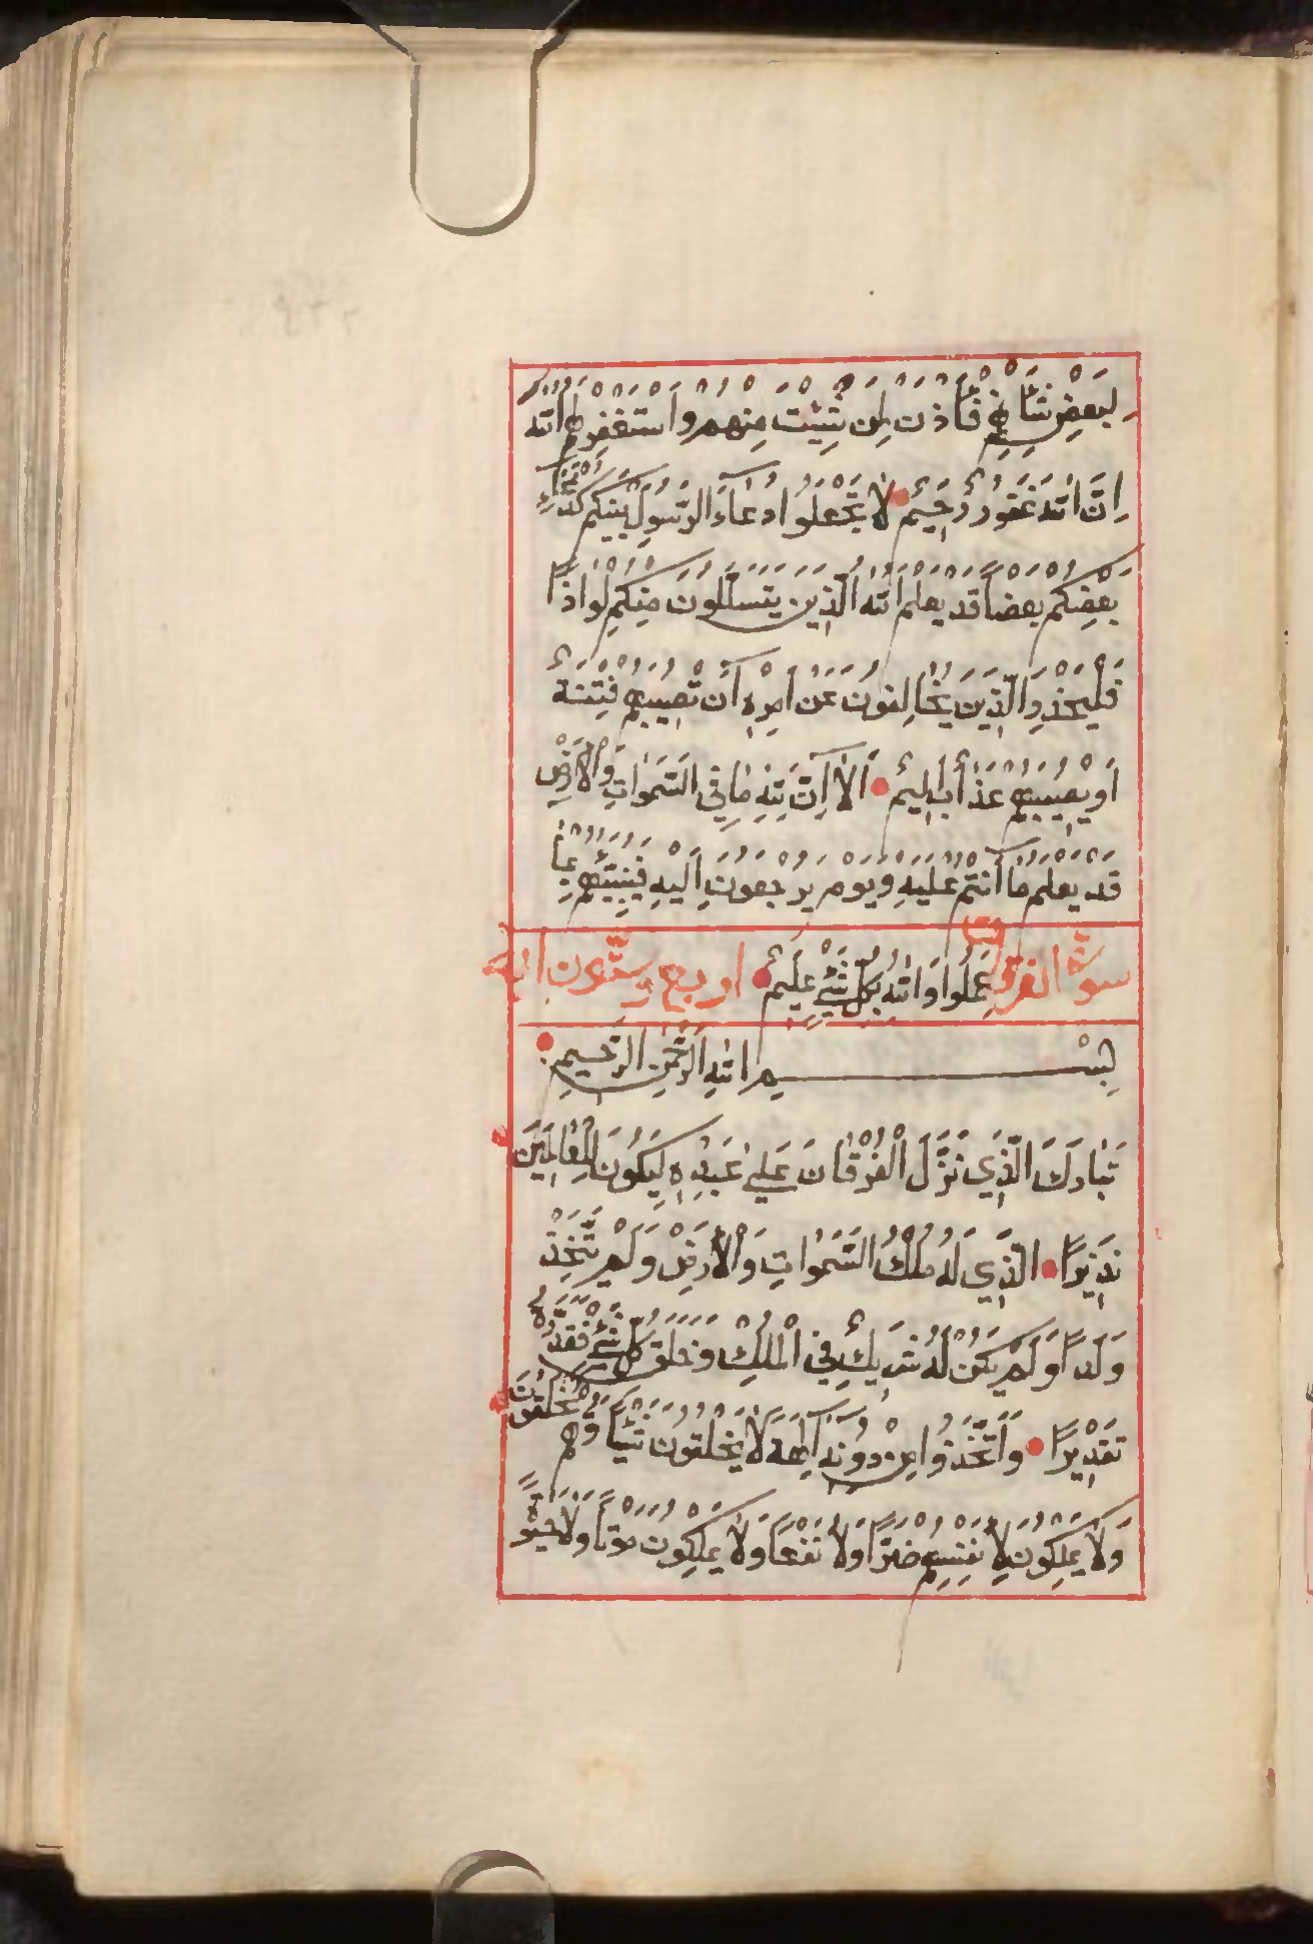 لِبَعْضِ شَأْنِهِمْ فَأْذَنْ لِمَنْ شِئْتَ مِنْهُمْ وَاسْتَغْفِرْ لَهُمُ اللّٰهَ
اِنَّ اللّٰهَ غَفُورٌ رَحِيمٌ لَا تَجْعَلُوا دُعَاءَ الرَّسُولِ بَيْنَكُمْ كَدُعَاءِ
بَعْضِكُمْ بَعْضًا قَدْ يَعْلَمُ اللّٰهُ الَّذِينَ يَتَسَلَّلُونَ مِنْكُمْ لِوَاذًا
فَلْيَحْذَرِ الَّذِينَ يُخَالِفُونَ عَنْ اَمْرِهِ اَنْ تُصِيبَهُمْ فِتْنَةٌ
اَوْ يُصِيبَهُمْ عَذَابٌ اَلِيمٌ اَلَا اِنَّ لِلّٰهِ مَا فِي السَّمٰوَاتِ وَالْاَرْضِ
قَدْ يَعْلَمُ مَا اَنْتُمْ عَلَيْهِ وَيَوْمَ يُرْجَعُونَ اِلَيْهِ فَيُنَبِّئُهُمْ بِمَا
سورة الفرقان عَمِلُوا وَاللّٰهُ بِكُلِّ شَيْءٍ عَلِيمٌ اربع وسبعون اية
بِسْمِ اللّٰهِ الرَّحْمٰنِ الرَّحِيمِ
تَبَارَكَ الَّذِي نَزَّلَ الْفُرْقَانَ عَلٰى عَبْدِهِ لِيَكُونَ لِلْعَالَمِينَ
نَذِيرًا الَّذِي لَهُ مُلْكُ السَّمٰوَاتِ وَالْاَرْضِ وَلَمْ يَتَّخِذْ
وَلَدًا وَلَمْ يَكُنْ لَهُ شَرِيكٌ فِي الْمُلْكِ وَخَلَقَ كُلَّ شَيْءٍ فَقَدَّرَهُ
تَقْدِيرًا وَاتَّخَذُوا مِنْ دُونِهِ اٰلِهَةً لَا يَخْلُقُونَ شَيْئًا وَهُمْ يُخْلَقُونَ
وَلَا يَمْلِكُونَ لِاَنْفُسِهِمْ ضَرًّا وَلَا نَفْعًا وَلَا يَمْلِكُونَ مَوْتًا وَلَا حَيٰوةً